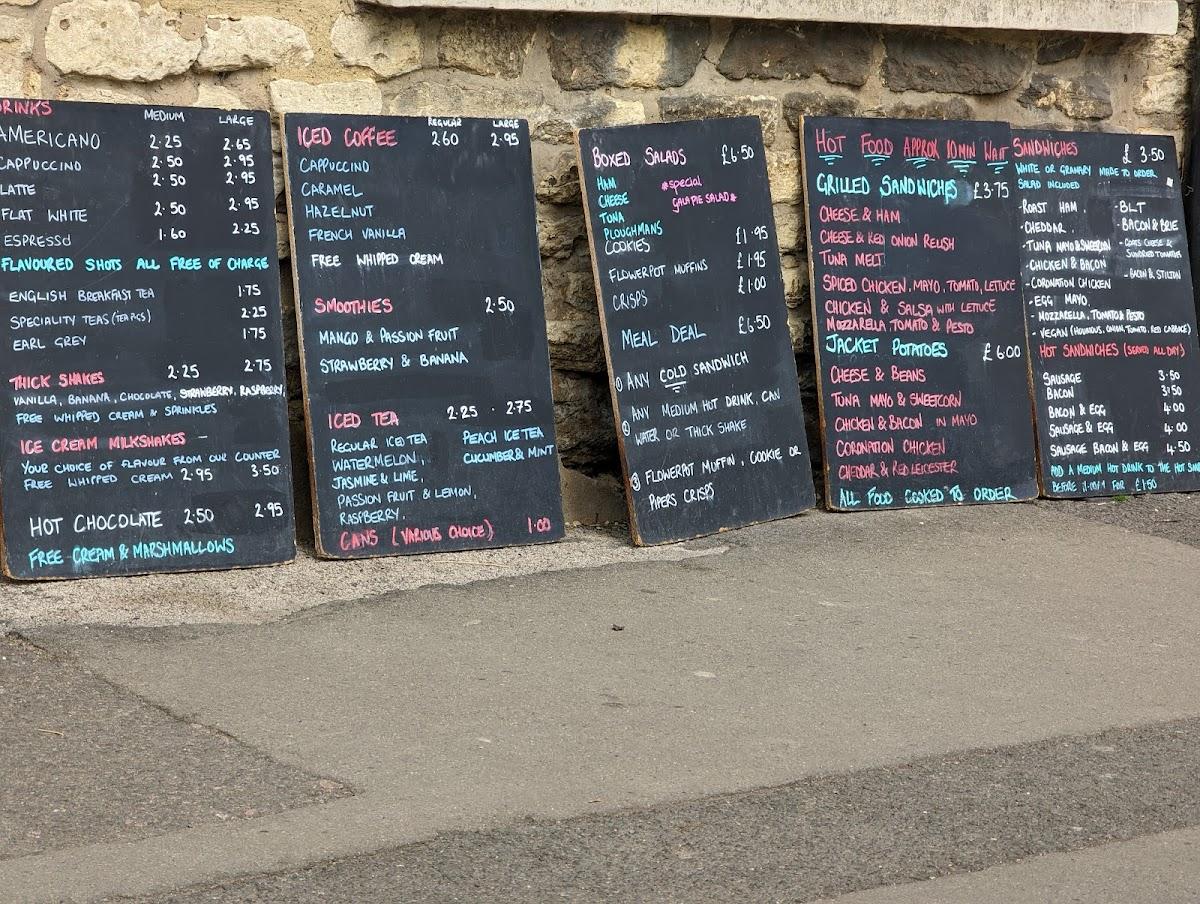 DRINKS MEDIUM LARGE
AMERICANO 2.25 2.65
CAPPUCCINO 2.50 2.95
LATTE 2.50 2.95
FLAT WHITE 2.50 2.95
ESPRESSO 1.60 2.25
FLAVOURED SHOTS ALL FREE OF CHARGE
ENGLISH BREAKFAST TEA 1.75
SPECIALITY TEAS (TEAPIGS) 2.25
EARL GREY 1.75
THICK SHAKES 2.25 2.75
VANILLA, BANANA, CHOCOLATE, STRAWBERRY, RASPBERRY
FREE WHIPPED CREAM & SPRINKLES
ICE CREAM MILKSHAKES -
YOUR CHOICE OF FLAVOUR FROM OUR COUNTER
FREE WHIPPED CREAM 2.95 3.50
HOT CHOCOLATE 2.50 2.95
FREE CREAM & MARSHMALLOWS
REGULAR LARGE
ICED COFFEE 2.60 2.95
CAPPUCCINO
CARAMEL
HAZELNUT
FRENCH VANILLA
FREE WHIPPED CREAM
SMOOTHIES 2.50
MANGO & PASSION FRUIT
STRAWBERRY & BANANA
ICED TEA 2.25 . 2.75
REGULAR ICED TEA PEACH ICE TEA
WATERMELON, CUCUMBER & MINT
JASMINE & LIME,
PASSION FRUIT & LEMON,
RASPBERRY,
CANS (VARIOUS CHOICE) 1.00
BOXED SALADS £6.50
HAM *special
CHEESE GALA PIE SALAD*
TUNA
PLOUGHMANS
COOKIES £1.95
FLOWERPOT MUFFINS £1.95
CRISPS £1.00
MEAL DEAL £6.50
① ANY COLD SANDWICH
② ANY MEDIUM HOT DRINK, CAN
WATER OR THICK SHAKE
③ FLOWERPOT MUFFIN, COOKIE OR
PIPERS CRISPS
HOT FOOD APPROX 10 MIN WAIT
GRILLED SANDWICHES £3.75
CHEESE & HAM
CHEESE & RED ONION RELISH
TUNA MELT
SPICED CHICKEN, MAYO, TOMATO, LETTUCE
CHICKEN & SALSA WITH LETTUCE
MOZZARELLA TOMATO & PESTO
JACKET POTATOES £6.00
CHEESE & BEANS
TUNA MAYO & SWEETCORN
CHICKEN & BACON IN MAYO
CORONATION CHICKEN
CHEDDAR & RED LEICESTER
ALL FOOD COOKED TO ORDER
SANDWICHES £3.50
WHITE OR GRANARY MADE TO ORDER
SALAD INCLUDED
- ROAST HAM. - BLT
- CHEDDAR. - BACON & BRIE
- TUNA MAYO & SWEETCORN - GOATS CHEESE & SUNDRIED TOMATOES
- CHICKEN & BACON - BACON & STILTON
- CORONATION CHICKEN
- EGG MAYO.
- MOZZARELLA, TOMATO & PESTO
- VEGAN (HOUMOUS, ONION TOMATO, RED CABBAGE)
HOT SANDWICHES (SERVED ALL DAY)
SAUSAGE 3.50
BACON 3.50
BACON & EGG 4.00
SAUSAGE & EGG 4.00
SAUSAGE BACON & EGG 4.50
ADD A MEDIUM HOT DRINK TO THE HOT
BEFORE FOR £1.50